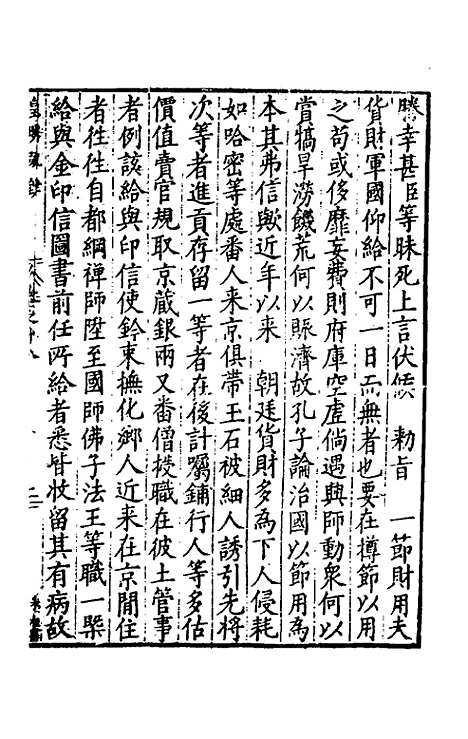 勝幸甚臣等昧死上言伏候　勅旨　一節財用夫
貨財軍國仰給不可一日而無者也要在撙節以用
之苟或侈靡妄費則府庫空虛倘遇興師動衆何以
賞犒旱澇饑荒何以賑濟故孔子論治國以節用為
本其弗信歟近年以来　朝廷貨財多為下人侵耗
如哈密等處番人来京俱帶玉石被細人誘引先將
次等者進貢存留一等者在後計囑鋪行人等多估
價值賣官規取京蔵銀兩又番僧授職在彼土管事
者例該給與印信使鈐束撫化鄉人近来在京閒住
者徃徃自都綱禅師陞至國師佛子法王等職一槩
給與金印信圖書前任所給者悉皆收留其有病故
皇明疏鈔